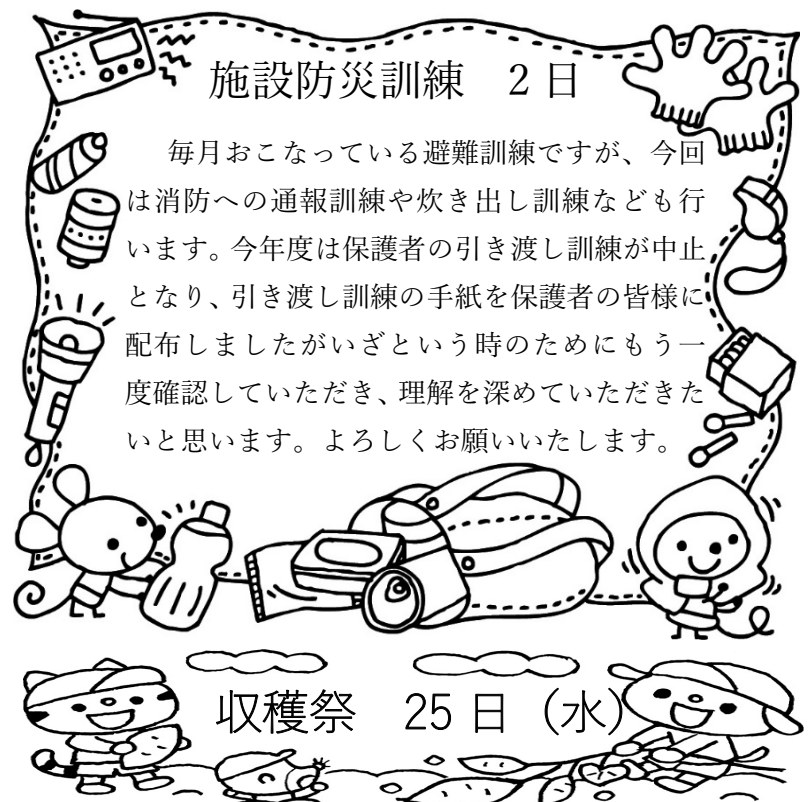 施設防災訓練　2日
毎月おこなっている避難訓練ですが、今回
は消防への通報訓練や炊き出し訓練なども行
います。今年度は保護者の引き渡し訓練が中止
となり、引き渡し訓練の手紙を保護者の皆様に
配布しましたがいざという時のためにもう一
度確認していただき、理解を深めていただきた
いと思います。よろしくお願いいたします。
収穫祭　25日（水）